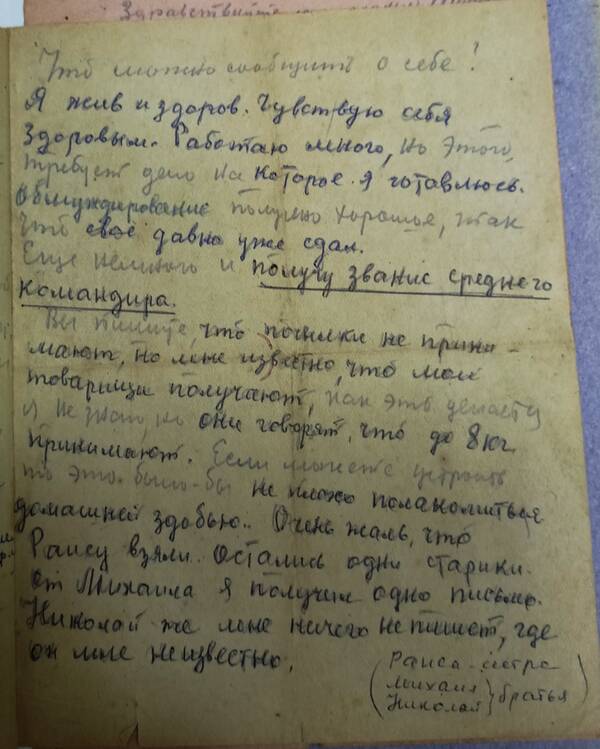 Здравствуйте
Что можно сообщить о себе!
Я жив и здоров. Чувствую себя
здоровым. Работаю много, но этого,
требует дело на которое я готовлюсь.
Обмундирование получено хорошее, так
что свое давно уже сдал.
Еще немного и получу звание среднего
командира.
Вы пишите, что посылки не прини-
мают, но мне известно, что мои
товарищи получают, как это делается
я не знаю, но они говорят, что до 8 кг.
принимают. Если можете устроить
то это было-бы не плохо полакомиться
домашней здобью.. Очень жаль, что
Раису взяли. Остались одни старики.
От Михаила я получил одно письмо.
Николай же мне ничего не пишет, где
он мне неизвестно.
(Раиса-сестра
Михаил
Николай } братья)